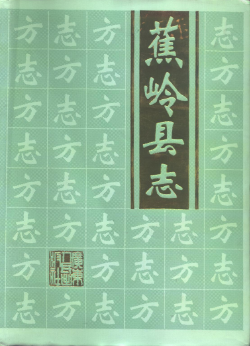 蕉岭县志
方志方志
志方志方
方志方志
志方志方
方志方志
志方志方志方
方方志方志
志方志方志方